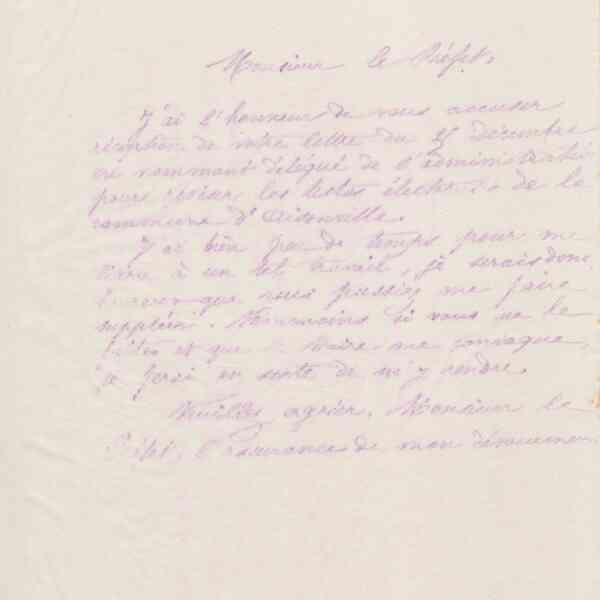 Monsieur le Préfet,
J'ai l'honneur de vous accuser
réception de votre lettre du 25 décembre
me nommant délégué de l'administratio
pour réviser les listes élector. de la
commune d'Aisonville.
J'ai bien peu de temps pour me
livrer à un tel travail, je serais donc
heureux que vous puissiez me faire
suppléer. Néanmoins si vous ne le
faites et que le Maire me convoque,
je ferai en sorte de m'y rendre.
Veuillez agréer, Monsieur le
Préfet, l'assurance de mon dévouemen